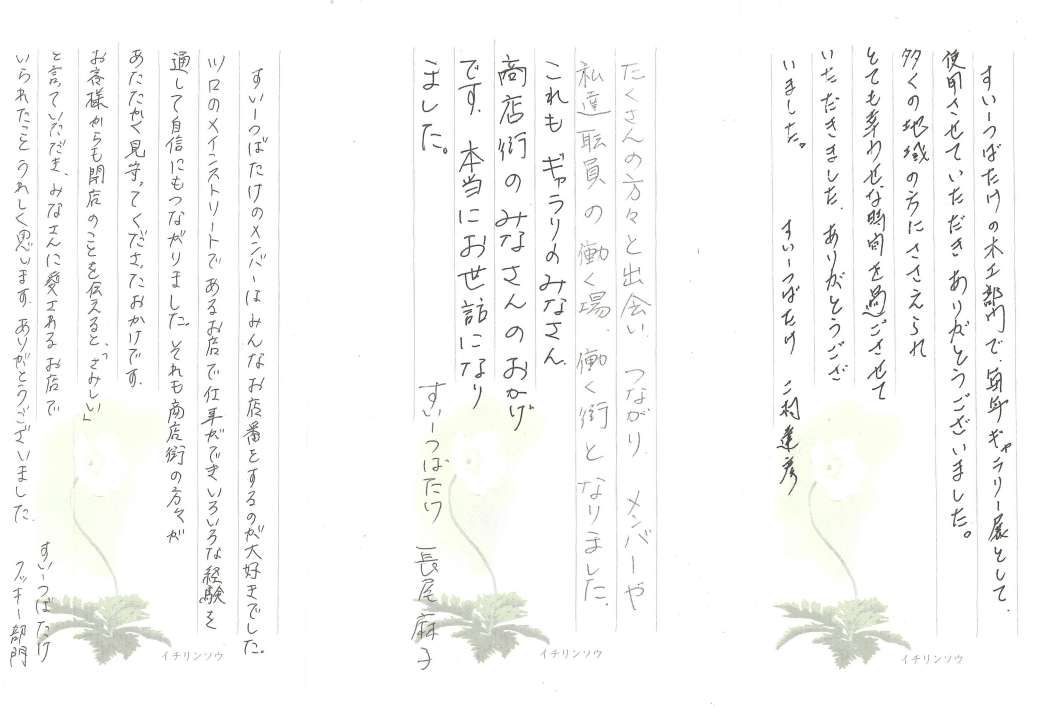 すいーつばたけの木工部門で、毎年ギャラリー展として、
使用させていただきありがとうございました。
多くの地域の方にささえられ
とても幸わせな時間を過ごさせて
いただきました。ありがとうござ
いました。
すいーつばたけ 二村達彦
イチリンソウ
たくさんの方々と出会い つながり、メンバーや
私達職員の働く場、働く街となりました。
これも ギャラリのみなさん、
商店街のみなさんのおかげ
です。本当にお世話になり
ました。
すいーつばたけ 長尾麻子
イチリンソウ
すいーつばたけのメンバーはみんなお店番をするのが大好きでした。
ツロのメインストリートであるお店で仕事ができいろいろな経験を
通して自信にもつながりました。それも商店街の方々が
あたたかく見守ってくださったおかけです。
お客様からも閉店のことを伝えると、「さみしい」
と言っていただき、みなさんに愛されるお店で
いられたこと うれしく思います。ありがとうございました。
すいーつばたけ
クッキー部門
イチリンソウ